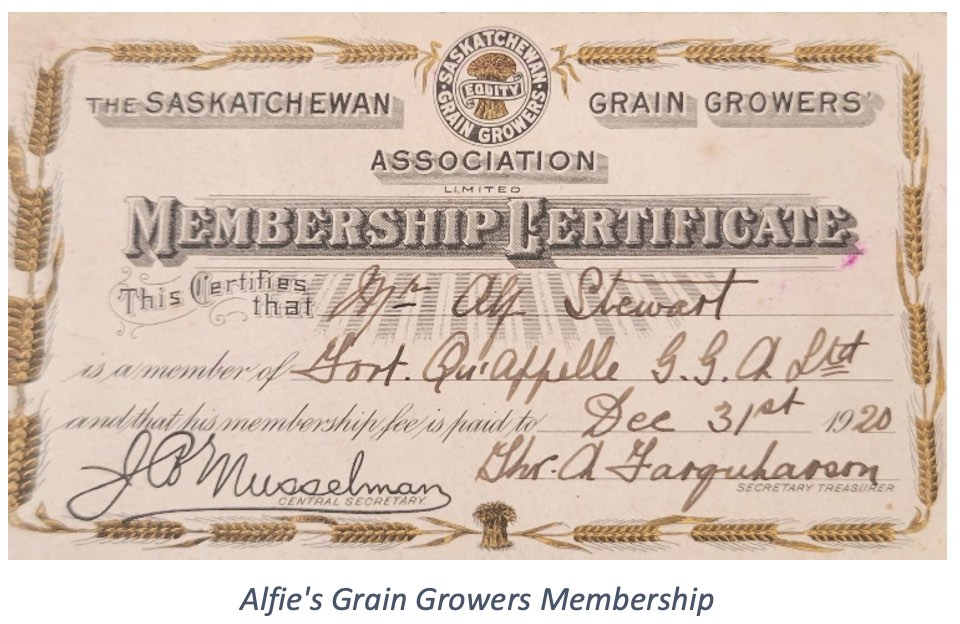 SASKATCHEWAN
EQUITY
GRAIN GROWERS
THE SASKATCHEWAN GRAIN GROWERS'
ASSOCIATION
LIMITED
MEMBERSHIP CERTIFICATE
This Certifies that Mr Alf Stewart
is a member of Fort. Qu'Appelle G. G. A Ltd
and that his membership fee is paid to Dec 31st 1920
J B Musselman Thr. A Farquharson
CENTRAL SECRETARY SECRETARY TREASURER
Alfie's Grain Growers Membership